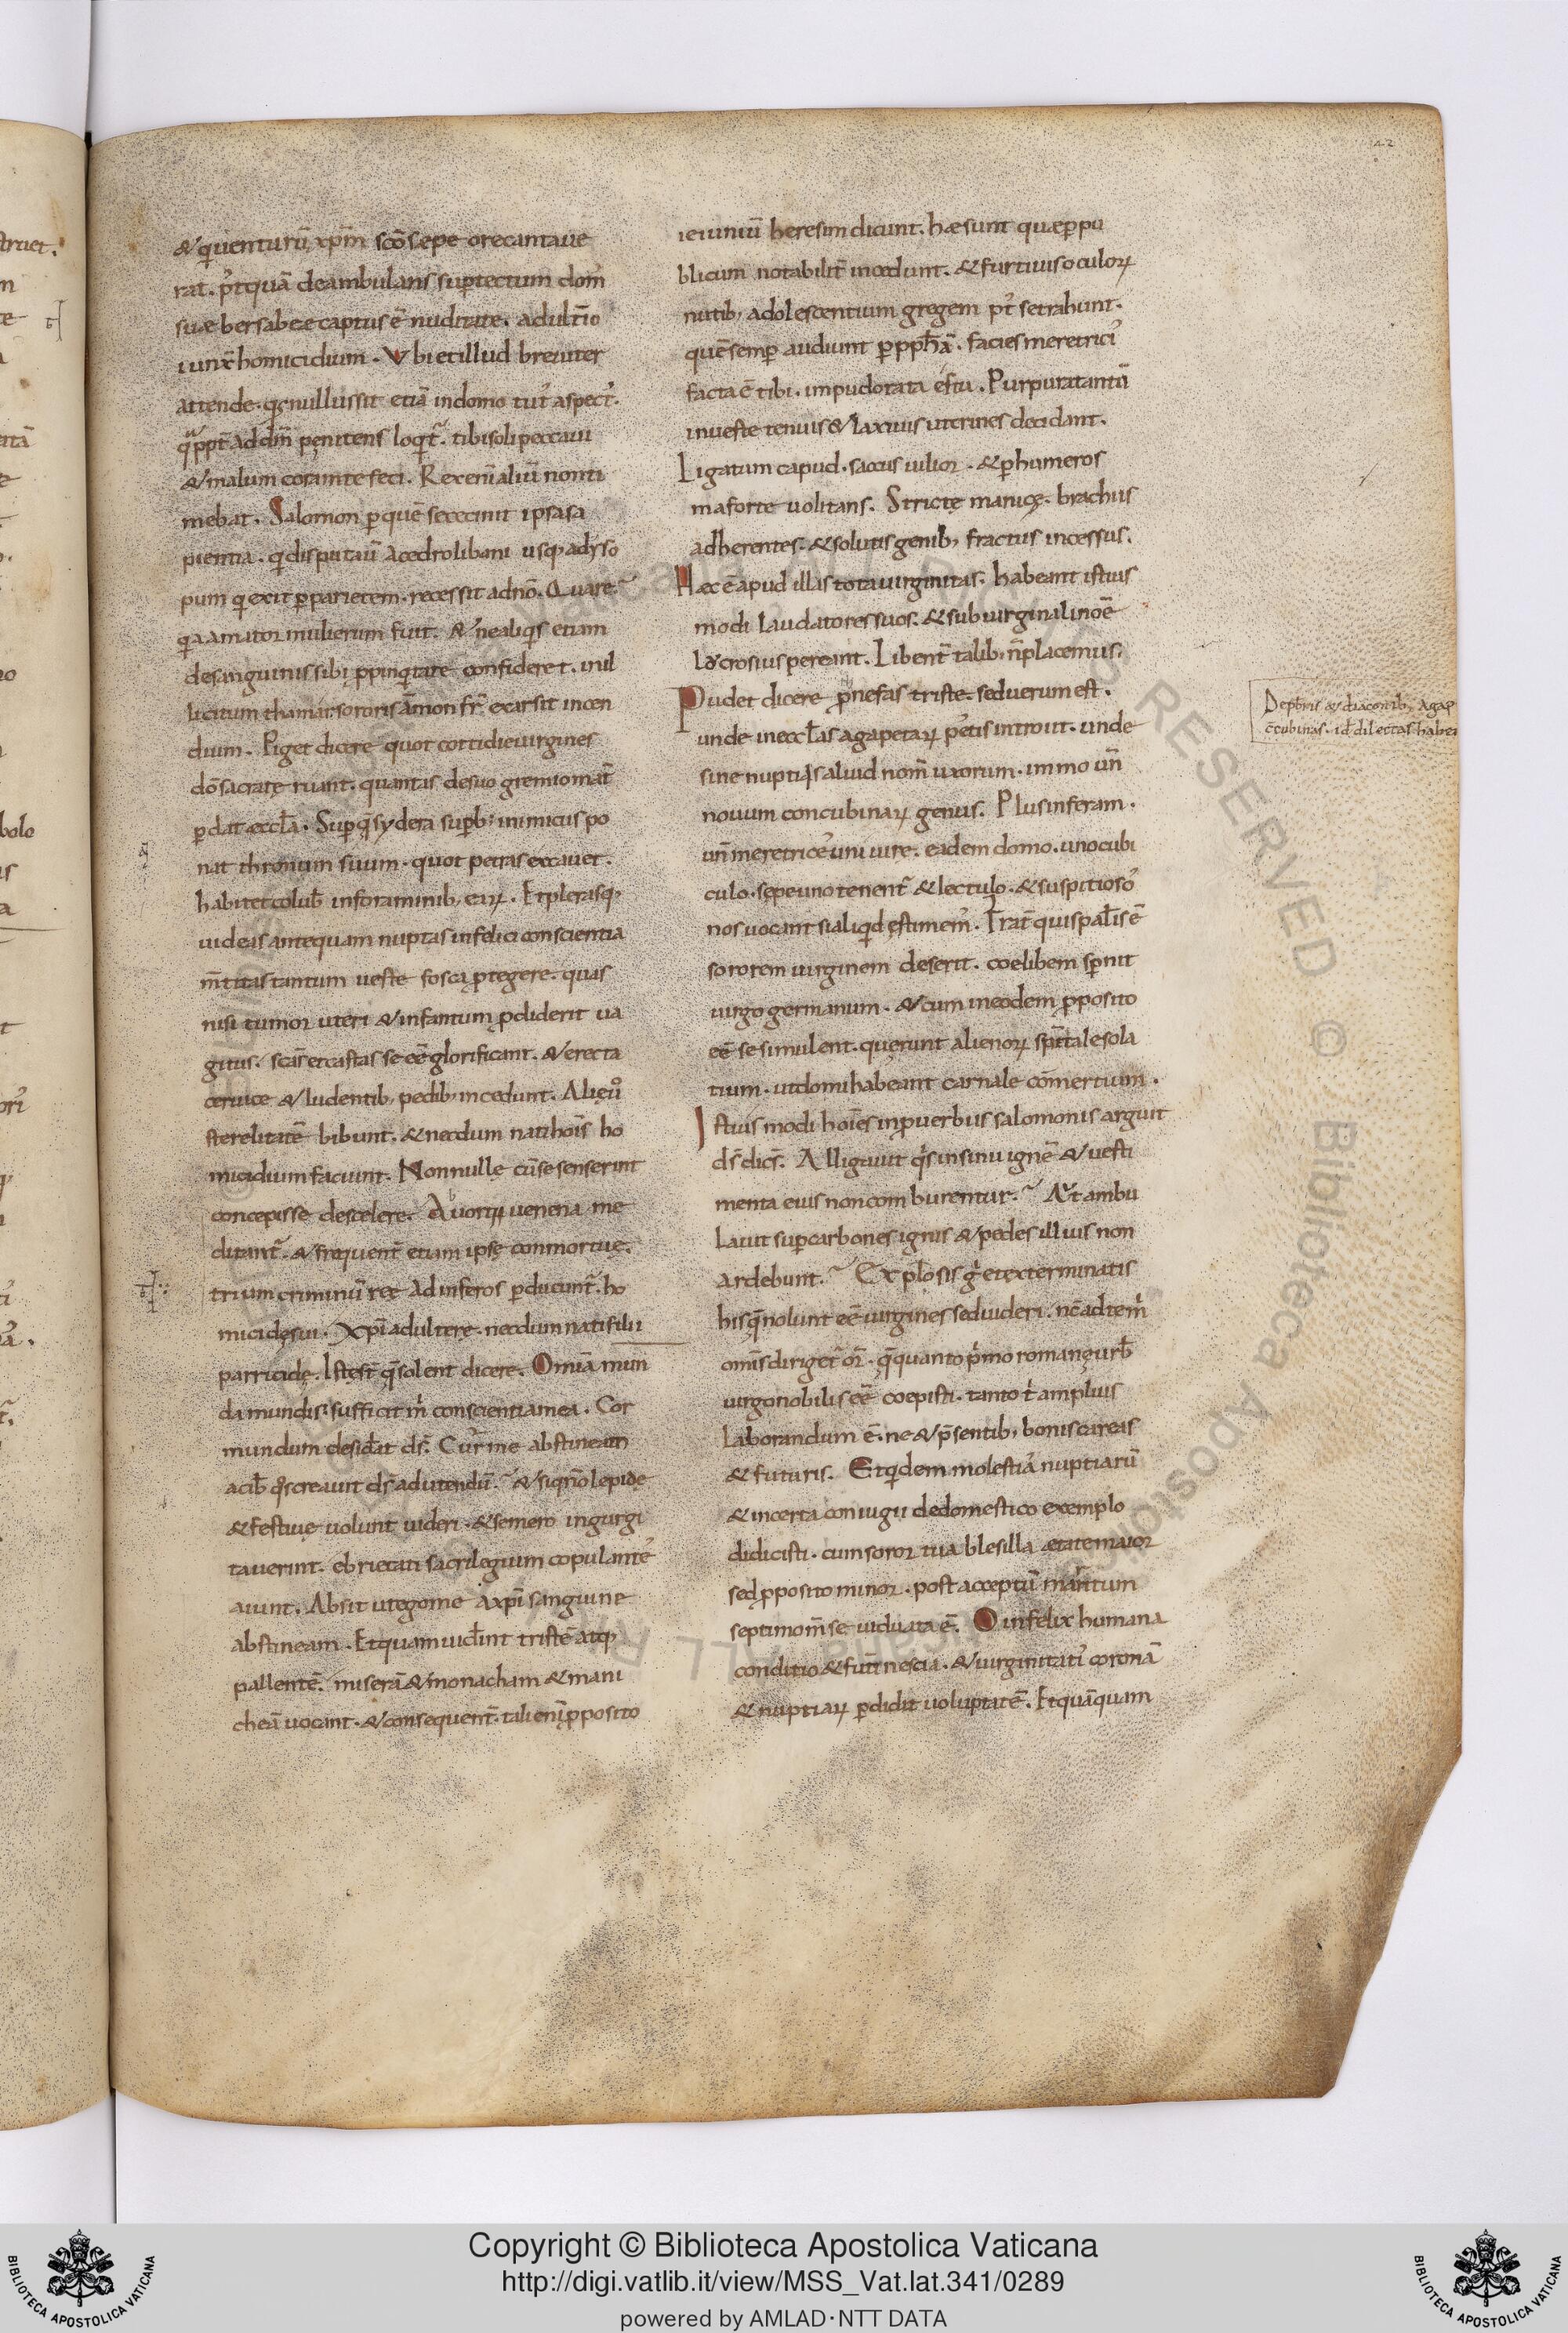 & qui uenturū xp̄m scō sępe ore cantaue
rat. p̓tquā deambulans sup tectum dom̓
suæ bersabeæ captus ē nuditate. adult̄io
iunx̄ homicidium. Vbi et illud breuiter
attende. qꝫ nullus sit etiā in domo tut̓ aspect̓.
qͣppt̄ ad dm̄ penitens loqt̄. tibi soli peccaui
& malum coram te feci. Rex enī aliū non ti
mebat. Salomon p quē se cecinit ipsa sa
pientia. qi disputauit a cedro libani usq; ad yso
pum qi exit p parietem. recessit a dnō. Quare?
qia amator mulierum fuit. & ne aliqis etiam
de sanguinis sibi ppinqitate confideret. in il
licitum thamar sororis āmon fr̄ exarsit incen
dium. Piget dicere quot cottidie uirgines
dō sacratę ruant. quantas de suo gremio mat̄
pdat æccl̄a. Sup q̄ sydera supb; inimicus po
nat thronum suum. quot petras excauet.
habitet colub̄ in foraminib; earꝝ. Et plerasq;
uideas antequam nuptas infelici conscientia
m̄titas tantum ueste fosca ptegere. quas
nisi tumor uteri & infantum pdiderit ua
gitus. scās et castas se eē glorificant. & erecta
ceruice & ludentib; pedib; incedunt. Alię uͦ
sterelitatē bibunt. & necdum nati hois̄ ho
micidium faciunt. Nonnullę cū se senserint
concepisse de scelere. Auortii uenena me
ditant̄. & frequent̄ etiam ipsę conmortuę.
trium criminū reę ad inferos pducunt̄. ho
micidę sui. Xp̄i adulterę. necdum nati filii
parricidę. Istę st̄ q̄ solent dicere. Omīa mun
da mundis. sufficit m̓ conscientia mea. Cor
mundum desiđat ds̄. Cur me abstineam
a cib̄ qos creauit ds̄ ad utendū? & siqn̄o lepide
& festiue uolunt uideri. & se mero ingurgi
tauerint. ebrietati sacrilegium copulantes
aiunt. Absit ut ego me a xp̄i sanguine
abstineam. Et quam uideīnt tristē atq;
pallentē. miserā & monacham & mani
cheā uocant. & consequent̄. tali enī pposito
ieiuniū heresim dicunt. hæ sunt quæ p pu
blicum notabilit̄ incedunt. & furtiuis oculorꝝ
nutib; adolescentium gregem pt̓ se trahunt.
quę semp audiunt p ppħā. facies meretrici̓
facta ē tibi. impudorata es tu. Purpura tantū
in ueste tenuis & laxius ut crines decidant.
Ligatum capud. soccus uilior. & p humeros
maforte uolitans. Strictę manicę. brachiis
adherentes. & solutis genib; fractus incessus.
Hæc ē apud illas tota uirginitas. habeant istius
modi laudatores suos. & sub uirginali noē
lucrosius pereant. Libent̄ talib; n̄ placemus.
Pudet dicere p nefas triste. sed uerum est.
unde in eccl̄as agapetarꝝ pestis introiit. unde
sine nuptiis aliud nom̄ uxorum. immo un̄
nouum concubinarꝝ genus. Plus inferam.
un̄ meretrices uniuire. eadem domo. uno cubi
culo. sępe uno tenent̄ & lectulo. & suspitiosos
nos uocant si aliqid estimem̓. Frat̄ qui spal̄is ē
sororem uirginem deserit. coelibem spnit
uirgo germanum. & cum in eodem pposito
eē se simulent. querunt alienorꝝ spītale sola
tium. ut domi habeant carnale cōmertium.
Istius modi hoīes in puerbiis salomonis arguit
ds̄ dics̄. Alligauit qis in sinu ignē & uesti
menta eius non comburentur? Aut ambu
lauit sup carbones ignis & pedes illius non
ardebunt? Explosis gͦ et exterminatis
his q̄ nolunt eē uirgines sed uideri. nc̄ ad te m̓
omīs diriget̄ or̄. q̄ quanto pimo romanę urb̄
uirgo nobilis eē coepisti. tanto ti amplius
laborandum ē. ne & p̄sentib; bonis careas
& futuris. Et qidem molestiā nuptiarū
& incerta coniugii de domestico exemplo
didicisti. cum soror tua blesilla ætate maior
sed pposito minor. post acceptū maritum
septimo m̄se uiduata ē. O infelix humana
conditio & futi nescia. & uirginitati̓ coronā
& nuptiarꝝ pdidit uoluptatē. Et quāquam
Copyright © Biblioteca Apostolica Vaticana
http://digi.vatlib.it/view/MSS_Vat.lat.341/0289
powered by AMLAD·NTT DATA